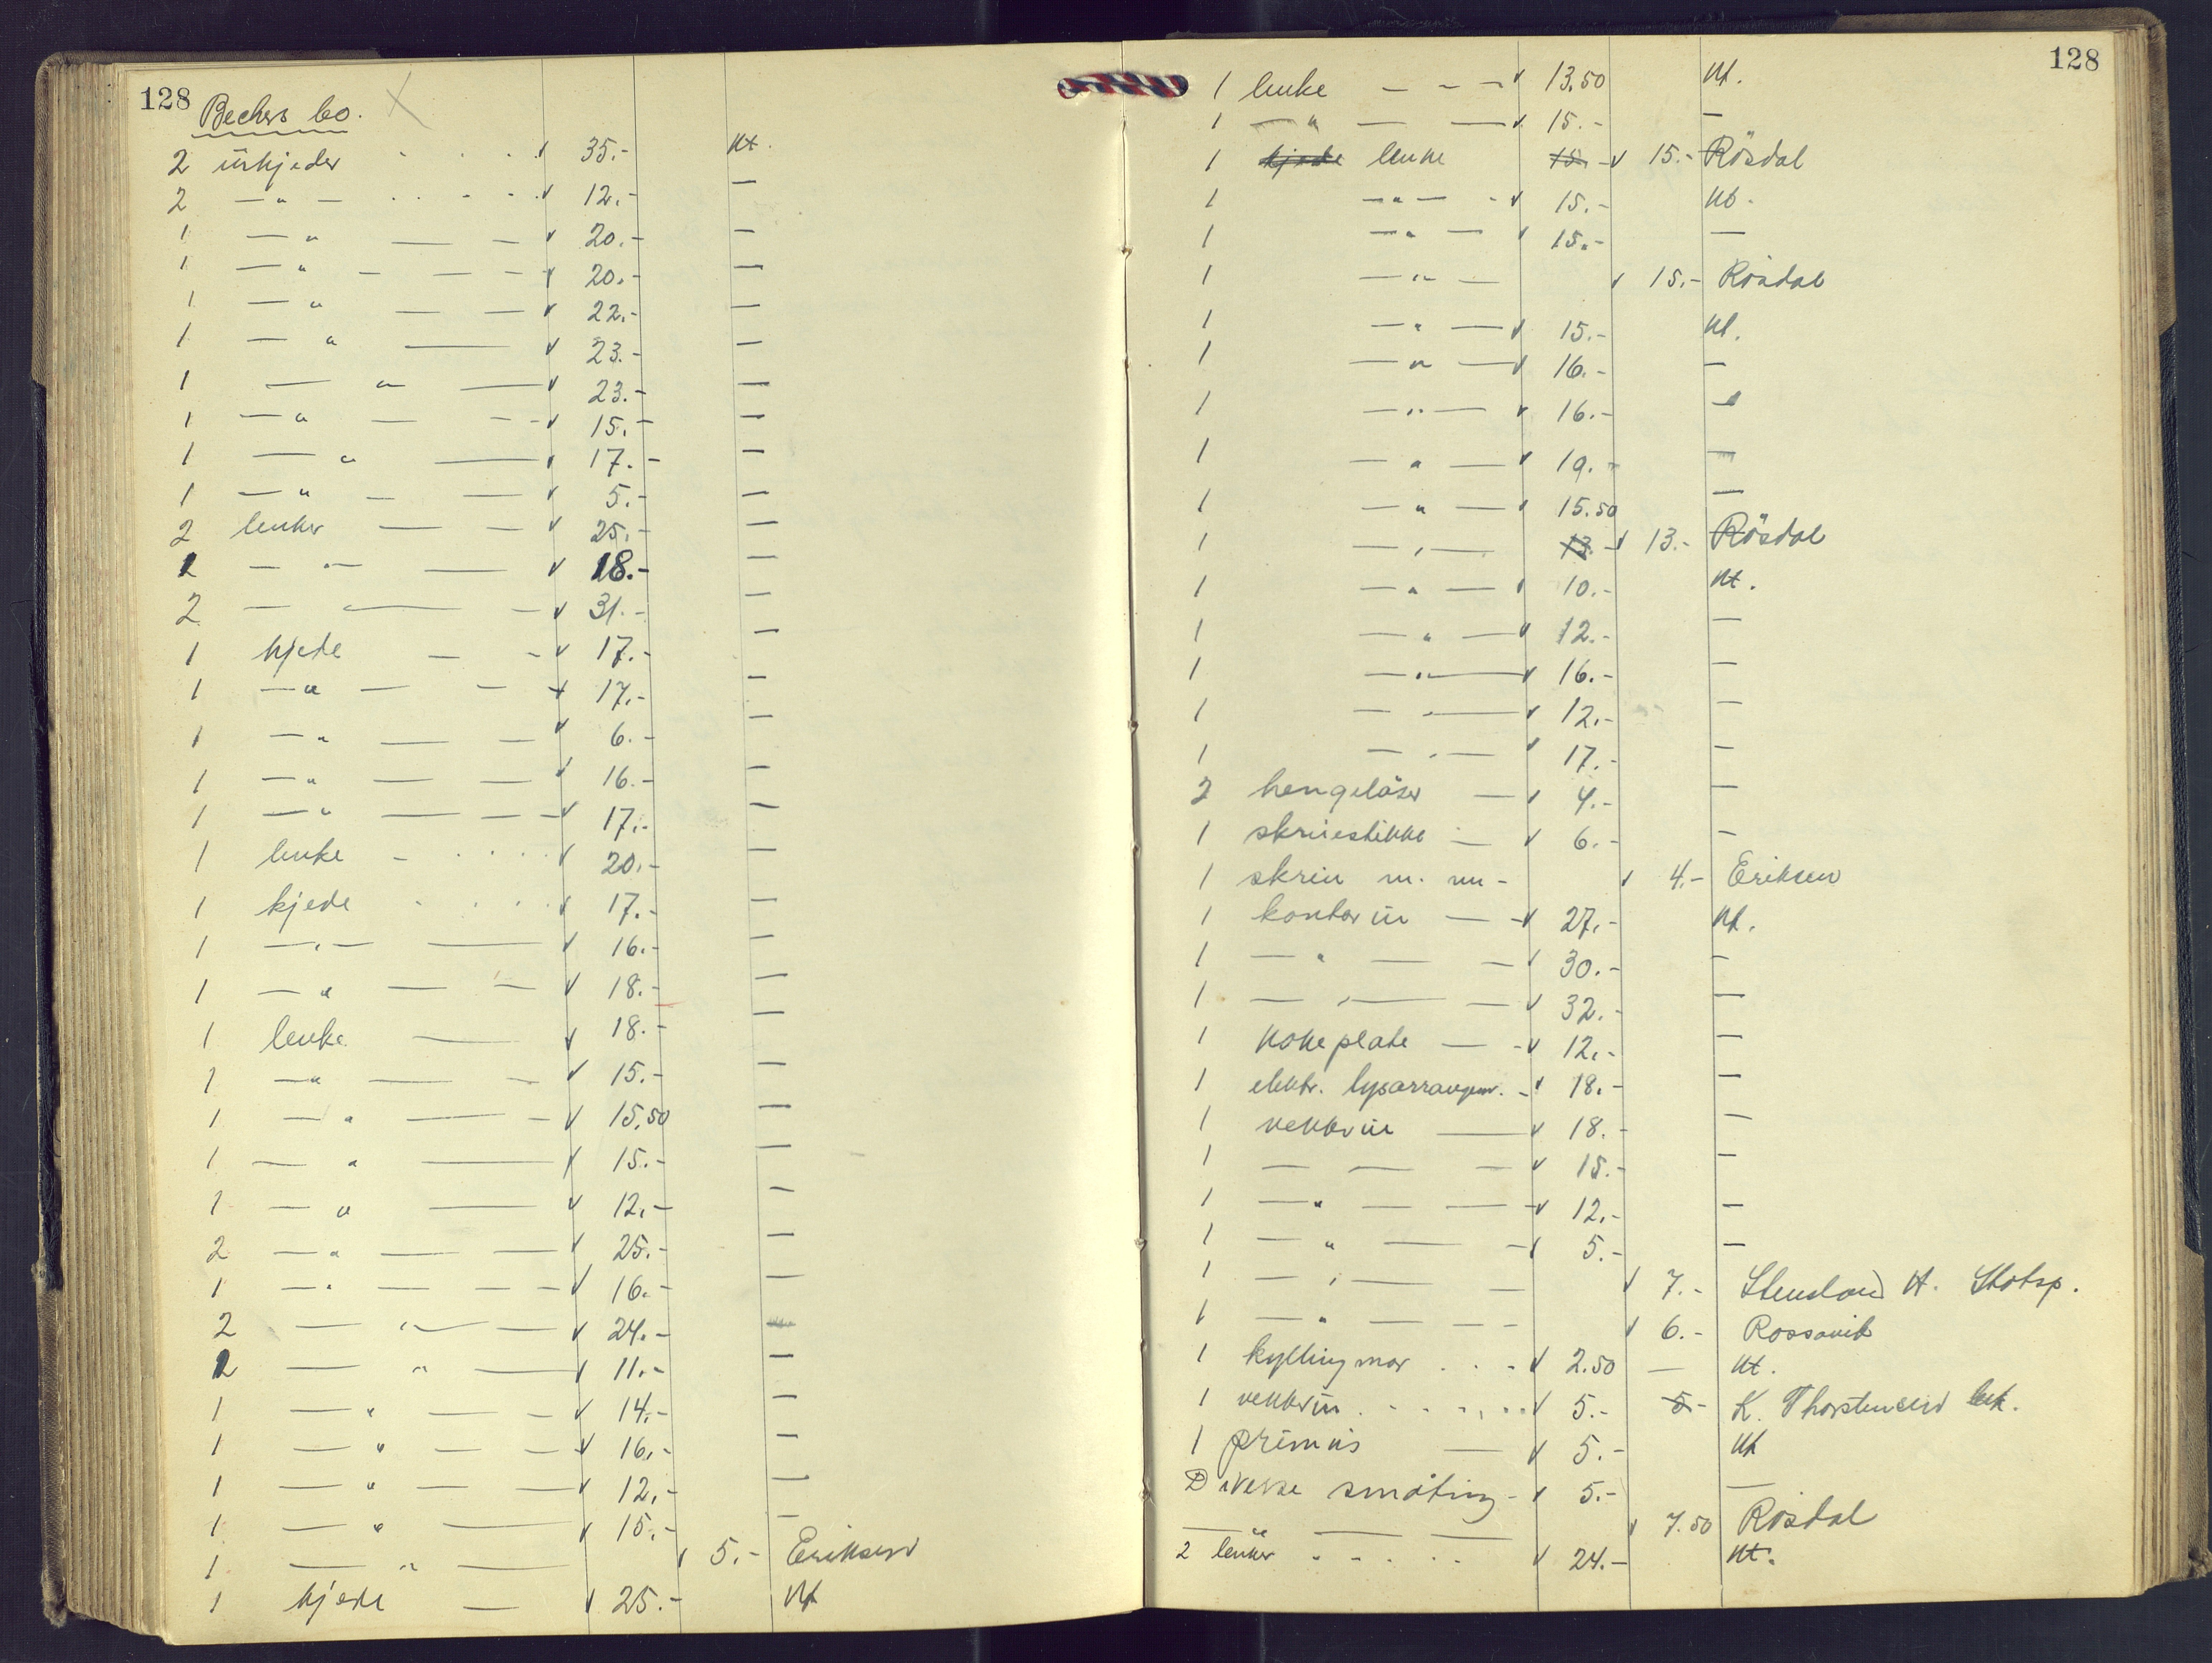 128
Bechers bo.
2 ürkjeder . . . 35.- Kt.
2 —"— . . - - 12.- —
1 —" — — 20.- —
1 —" - — — - 20.- —
1 —" — — 22.- —
1 —" — 23.- —
1 —" — 23.- —
1 —" — - - 15.- —
1 —" — 17.- —
1 —" — — 5.- —
2 lenker — — 25.- —
1 —"— — 18.- —
2 — — - 31.- —
1 kjede — - 17.- —
1 —" — - - 17.- —
1 —" — — 6.- —
1 —" — — 16.- —
1 —" — — - 17.- —
1 lenke - . . . 20.- —
1 kjede - . . . 17.- —
1 —"— — 16.- —
1 —" — — 18.- —
1 lenke — 18.- —
1 —" — - 15.- —
1 —" — - 15,50 —
1 —" — 15.- —
1 —" — 12.- —
2 —" — — 25.- —
1 —" — — - 16.- —
2 —"— — 24.- —
1 —" — 11.- —
1 —" — - 14.- —
1 —" — - - 16.- —
1 —" — — 12.- —
1 —" — 15.- —
1 —" — 5.- Eriksen
1 kjede — 25.- Kt
128
1 lenke - - - 13.50 Kt.
1 —" — — 15.- —
1 kjede lenke 15.- 15.- Rösdal
1 —"— - 15.- Kt.
1 —"— 15.- —
1 —"— 15.- Rösdal
1 —"— 15.- Kt.
1 —"— 16.- —
1 —"— 16.- —
1 —"— 19.- —
1 —"— 15.50 —
1 —"— 13.- 13.- Rösdal
1 —"— 10.- Kt.
1 —"— 12.- —
1 —"— 16.- —
1 —"— 12.- —
1 —"— 17.- —
2 hengelåser — 4.- —
1 skruestikke — 6.- —
1 skrin m. m - 4.- Eriksen
1 kontorür — - 27.- Kt.
1 —" — - 30.- —
1 —"— - 32.- —
1 kokeplate — - 12.- —
1 elektr. lysarrangem. - 18.- —
1 vekkerür — 18.- —
1 — — - 15.- —
1 —" — — 12.- —
1 —" — - 5.- —
1 —"— - 7.- Stensland A. Skotsp.
1 —" — - - 6.- Rossavik
1 kyllingmor . . - 2.50 — Kt.
1 vekkerür . - - - . . 5.- 5.- K. Thorstensen
1 primus — 5.- Kt
Diverse småting - 5.- —
— — — 7.50 Rösdal
2 lenker . - . . . 24.- Kt.